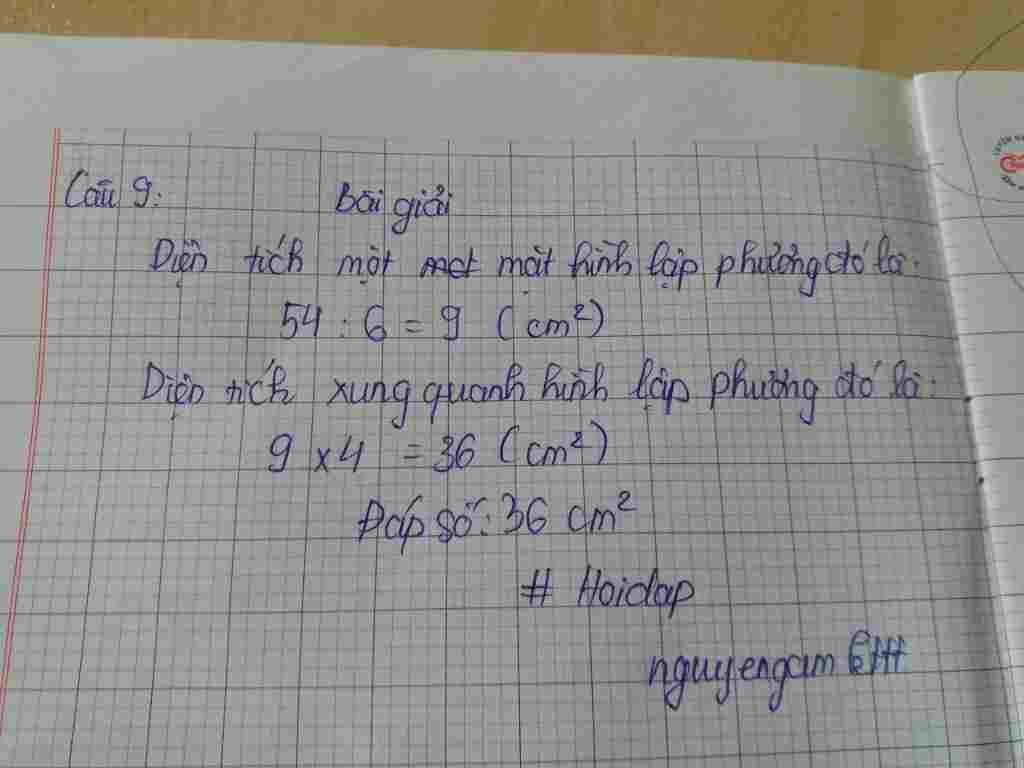 Câu 9: Bài giải
Diện tích một mặt hình lập phương đó là:
54 : 6 = 9 (cm²)
Diện tích xung quanh hình lập phương đó là:
9 x 4 = 36 (cm²)
Đáp số: 36 cm²
# Hoidap
nguyengam